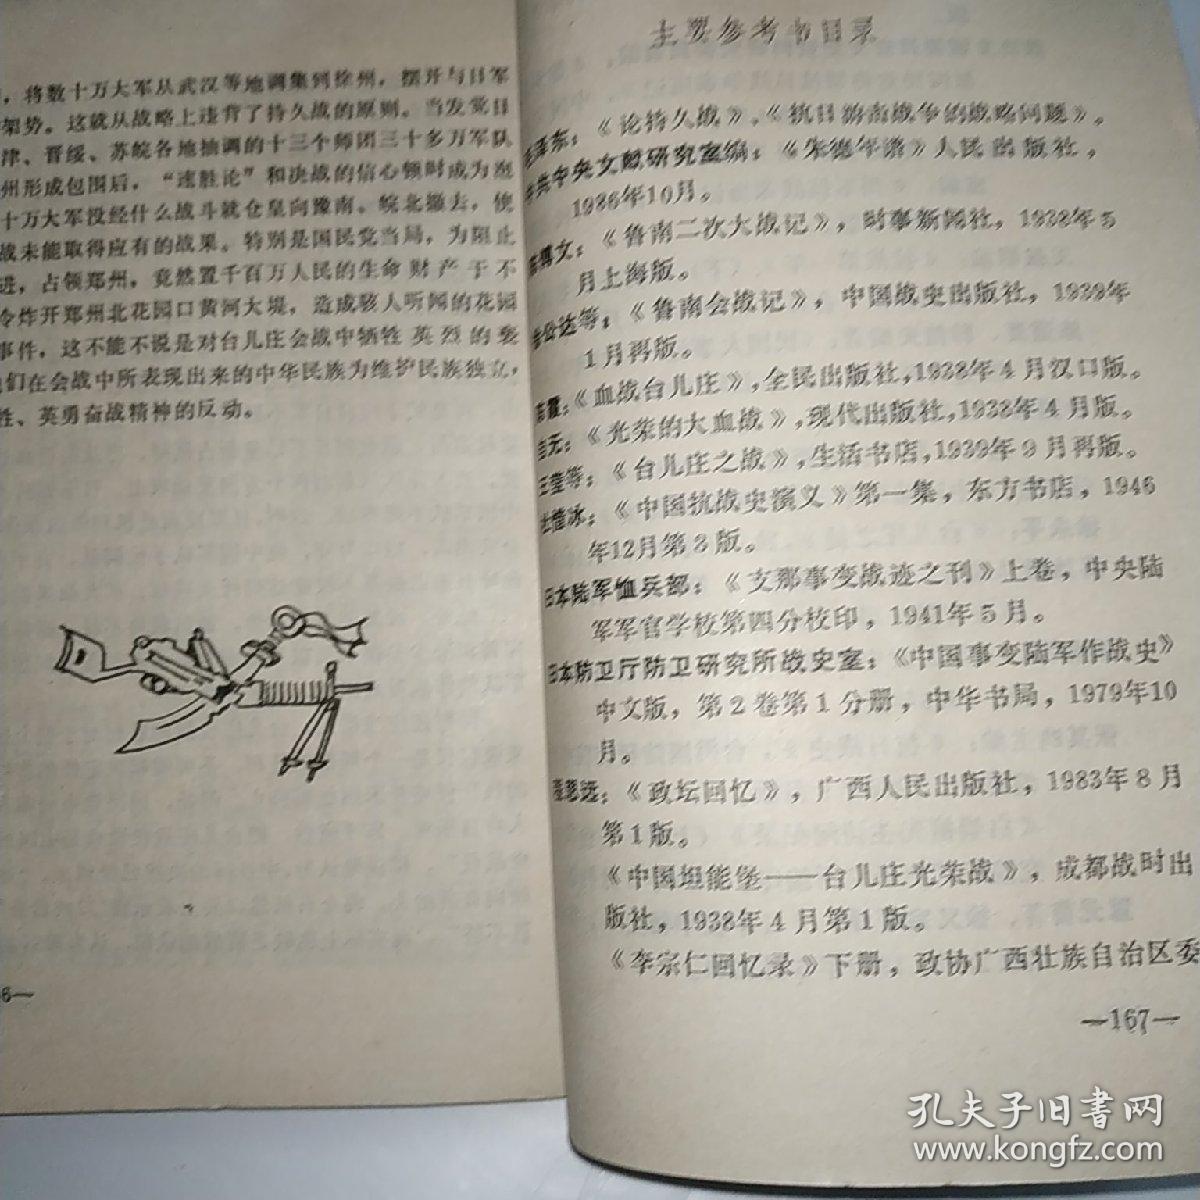 ，将数十万大军从武汉等地调集到徐州，摆开与日军
架势。这就从战略上违背了持久战的原则。当发觉日
津、晋绥、苏皖各地抽调的十三个师团三十多万军队
州形成包围后，“速胜论”和决战的信心顿时成为泡
十万大军没经什么战斗就仓皇向豫南、皖北撤去，使
战未能取得应有的战果。特别是国民党当局，为阻止
进，占领郑州，竟然置千百万人民的生命财产于不
令炸开郑州北花园口黄河大堤，造成骇人听闻的花园
事件，这不能不说是对台儿庄会战中牺牲英烈的亵
们在会战中所表现出来的中华民族为维护民族独立，
牲、英勇奋战精神的反动。
6—
主要参考书目录
泽东：《论持久战》，《抗日游击战争的战略问题》。
共中央文献研究室编：《朱德年谱》人民出版社，
1986年10月。
博文：《鲁南二次大战记》，时事新闻社，1938年5
月上海版。
公达等：《鲁南会战记》，中国战史出版社，1939年
1月再版。
霞：《血战台儿庄》，全民出版社，1938年4月汉口版。
元：《光荣的大血战》，现代出版社，1938年4月版。
王莹等：《台儿庄之战》，生活书店，1939年9月再版。
杜惜冰：《中国抗战史演义》第一集，东方书店，1946
年12月第3版。
日本陆军恤兵部：《支那事变战迹之刊》上卷，中央陆
军军官学校第四分校印，1941年5月。
日本防卫厅防卫研究所战史室：《中国事变陆军作战史》
中文版，第2卷第1分册，中华书局，1979年10
月。
程思远：《政坛回忆》，广西人民出版社，1983年8月
第1版。
《中国坦能堡——台儿庄光荣战》，成都战时出
版社，1938年4月第1版。
《李宗仁回忆录》下册，政协广西壮族自治区委
—167—
孔夫子旧书网
www.kongfz.com